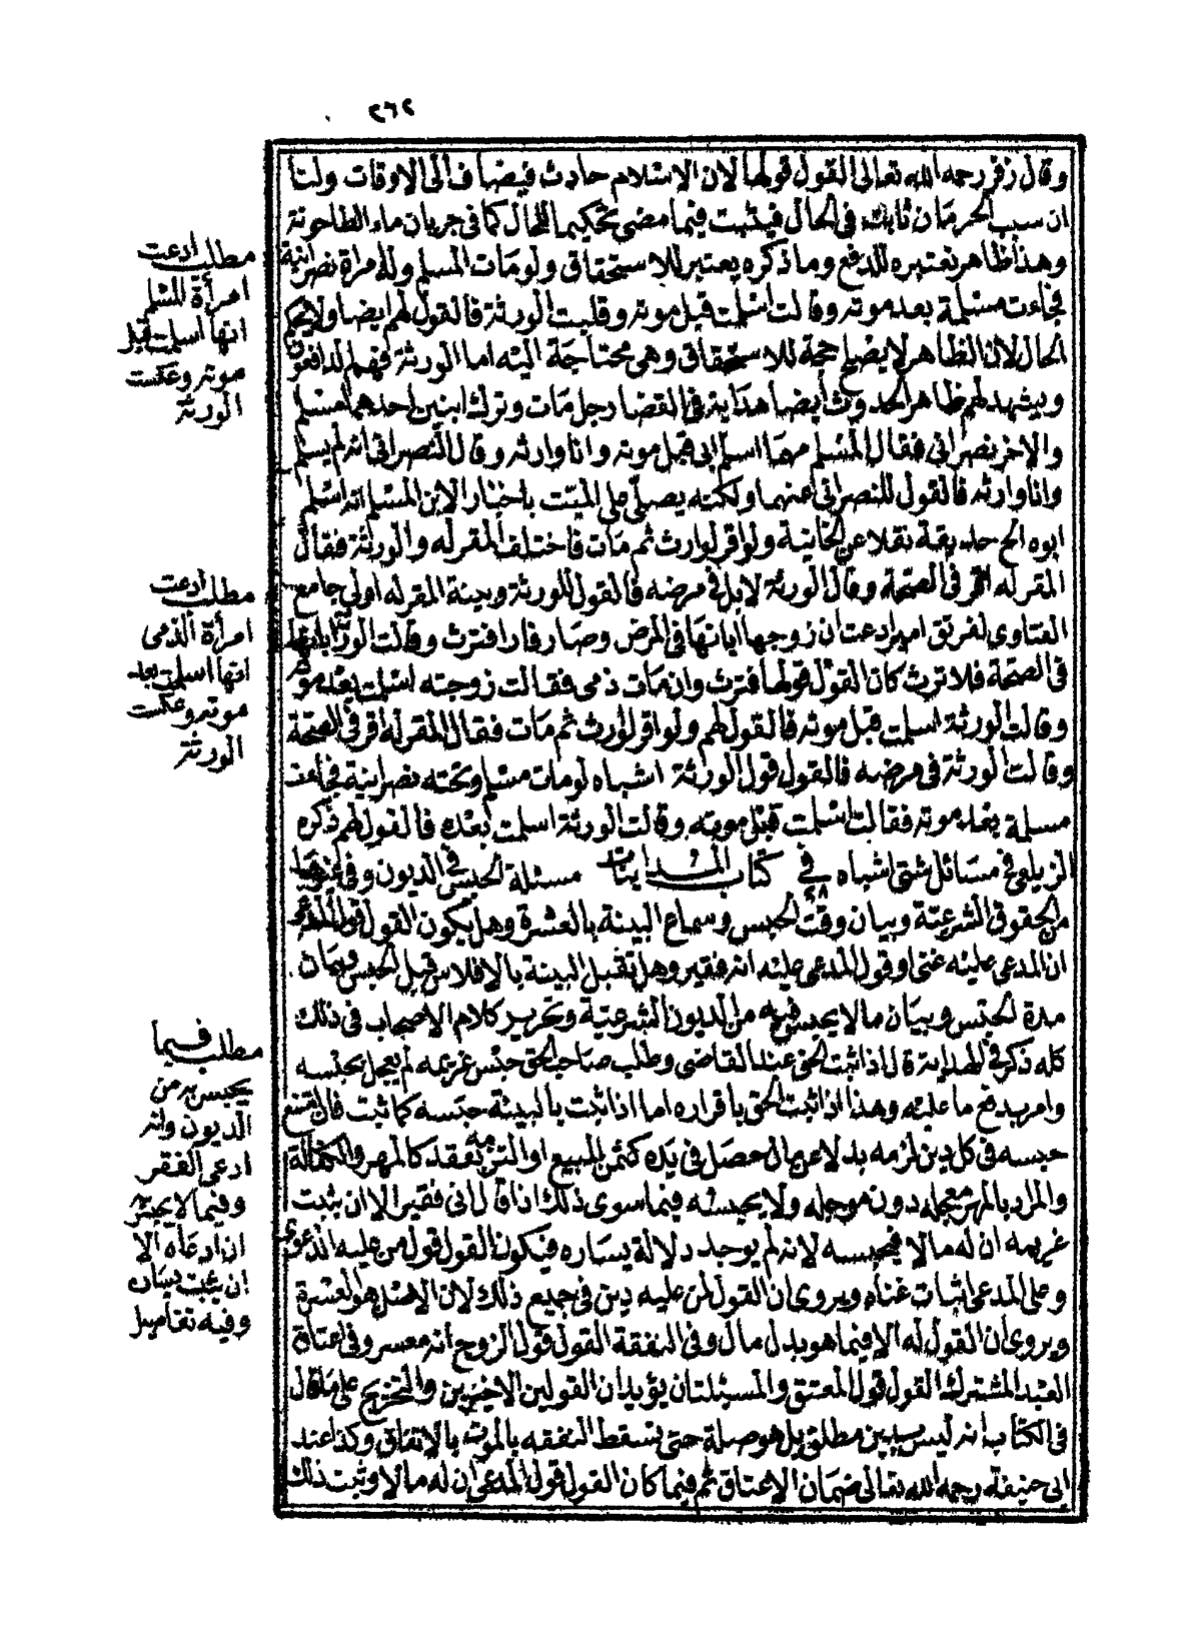 ٢٦٢
وقال زفر رحمه الله تعالى القول قولها لان الاسلام حادث فيضاف الى الاوقات ولنا
ان سبب الحرمان ثابت فى الحال فيثبت فيما مضى تحكيما للحال كما فى جريان ماء الطاحونة
وهذا ظاهر نعتبره للدفع وما ذكره يعتبر للاستحقاق ولو مات المسلم وله امراة نصرانية
فجاءت مسلمة بعد موته وقالت اسلمت قبل موته وقالت الورثة فالقول لهم ايضا ولا يحكم
الحال لان الظاهر لا يصلح حجة للاستحقاق وهى محتاجة اليه اما الورثة فهم الدافعون
ويشهد لهم ظاهر الحدوث ايضا هداية فى القضا رجل مات وترك ابنين احدهما مسلم
والاخر نصرانى فقال المسلم منهما اسلم ابى قبل موته وانا وارثه وقال النصرانى انه لم يسلم
وانا وارثه فالقول للنصرانى منهما ولكنه يصلى على الميت باخبار الابن المسلم انه اسلم
ابوه الخ حديقة نقلا عن الخانية ولو اقر لوارث ثم مات فاختلف المقر له والورثة فقال
المقر له اقر فى الصحة وقال الورثة لا بل فى مرضه فالقول للورثة وبينة المقر له اولى جامع
الفتاوى لفريق امير ادعت ان زوجها ابانها فى المرض وصار فارا فترث وقالت الورثة ابانها
فى الصحة فلا ترث كان القول قولها فترث وان مات ذمى فقالت زوجته اسلمت بعد موته
وقالت الورثة اسلمت قبل موته فالقول لهم ولو اقر لوارث ثم مات فقال المقر له اقر فى الصحة
وقالت الورثة فى مرضه فالقول قول الورثة اشباه لو مات مسلم وتحته نصرانية فجاءت
مسلمة بعد موته فقالت اسلمت قبل موته وقالت الورثة اسلمت بعده فالقول لهم ذكره
الزيلعى فى مسائل شتى اشباه فى كتاب المداينات مسئلة الحبس فى الديون وفى غيرها
من الحقوق الشرعية وبيان وقت الحبس وسماع البينة بالعشرة وهل يكون القول قول المدعى
ان المدعى عليه غنى او قول المدعى عليه انه فقير وهل تقبل البينة بالافلاس قبل الحبس وبيان
مدة الحبس وبيان ما لا يحبس فيه من الديون الشرعية وتحرير كلام الاصحاب فى ذلك
كله ذكر فى الهداية قال اذا ثبت الحق عند القاضى وطلب صاحب الحق حبس غريمه لم يعجل بحبسه
وامر بدفع ما عليه وهذا اذا ثبت الحق باقراره اما اذا ثبت بالبينة حبسه كما ثبت فان امتنع
حبسه فى كل دين لزمه بدلا عن مال حصل فى يده كثمن المبيع او التزمه بعقد كالمهر والكفالة
والمراد بالمهر معجله دون موجله ولا يحبسه فيما سوى ذلك اذا قال انى فقير الا ان يثبت
غريمه ان له مالا فيحبسه لانه لم يوجد دلالة يساره فيكون القول قول من عليه الدعوى
وعلى المدعى اثبات غناه ويروى ان القول لمن عليه دين فى جميع ذلك لان الاصل هو العسرة
ويروى ان القول له الا فيما هو بدل مال وفى النفقة القول قول الزوج انه معسر وفى اعتاق
العبد المشترك القول قول المعتق والمسئلتان يؤيدان القولين الاخيرين والتخريج على ما قال
فى الكتاب انه ليس بدين مطلق بل هو صلة حتى تسقط النفقه بالموت بالاتفاق وكذا عند
ابى حنيفة رحمه الله تعالى ضمان الاعتاق ثم فيما كان القول قول المدعى ان له مالا وثبت ذلك
مطلب ادعت
امرأة المسلم
انها اسلمت قبل
موته وعكست
الورثة
مطلب ادعت
امرأة الذمى
انها اسلمت بعد
موته وعكست
الورثة
مطلب فيما
يحبس به من
الديون وانه
ادعى الفقر
وفيما لا يحبس
ان ادعاه الا
ان يثبت يساره
وفيه تفاصيل